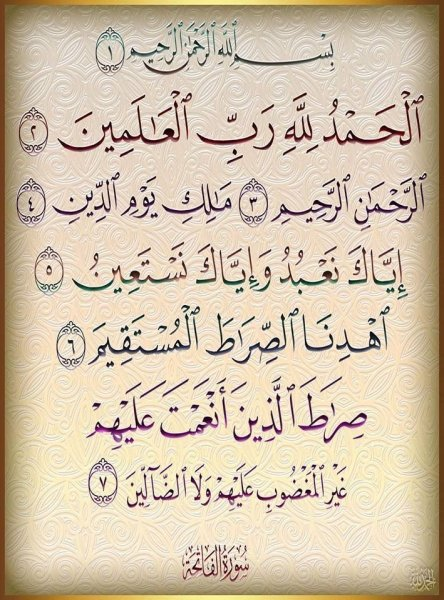 بِسْمِ ٱللَّهِ ٱلرَّحْمَٰنِ ٱلرَّحِيمِ ١
ٱلْحَمْدُ لِلَّهِ رَبِّ ٱلْعَٰلَمِينَ ٢
ٱلرَّحْمَٰنِ ٱلرَّحِيمِ ٣ مَٰلِكِ يَوْمِ ٱلدِّينِ ٤
إِيَّاكَ نَعْبُدُ وَإِيَّاكَ نَسْتَعِينُ ٥
ٱهْدِنَا ٱلصِّرَٰطَ ٱلْمُسْتَقِيمَ ٦
صِرَٰطَ ٱلَّذِينَ أَنْعَمْتَ عَلَيْهِمْ
غَيْرِ ٱلْمَغْضُوبِ عَلَيْهِمْ وَلَا ٱلضَّآلِّينَ ٧
سُورَةُ الفَاتِحَة